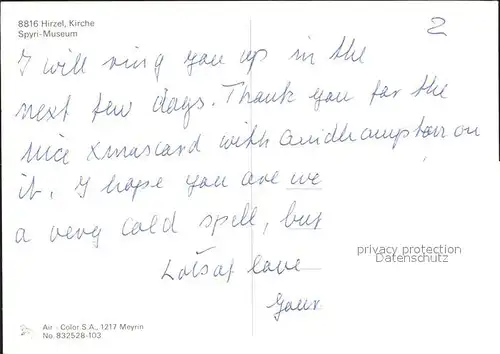 8816 Hirzel, Kirche
Spyri-Museum
2
I will ring you up in the
next few days. Thank you for the
nice Xmascard with on
it. I hope you are we
a very cold spell, but
Lots of love
Your
privacy protection
Datenschutz
Air - Color S.A., 1217 Meyrin
No. 832528-103